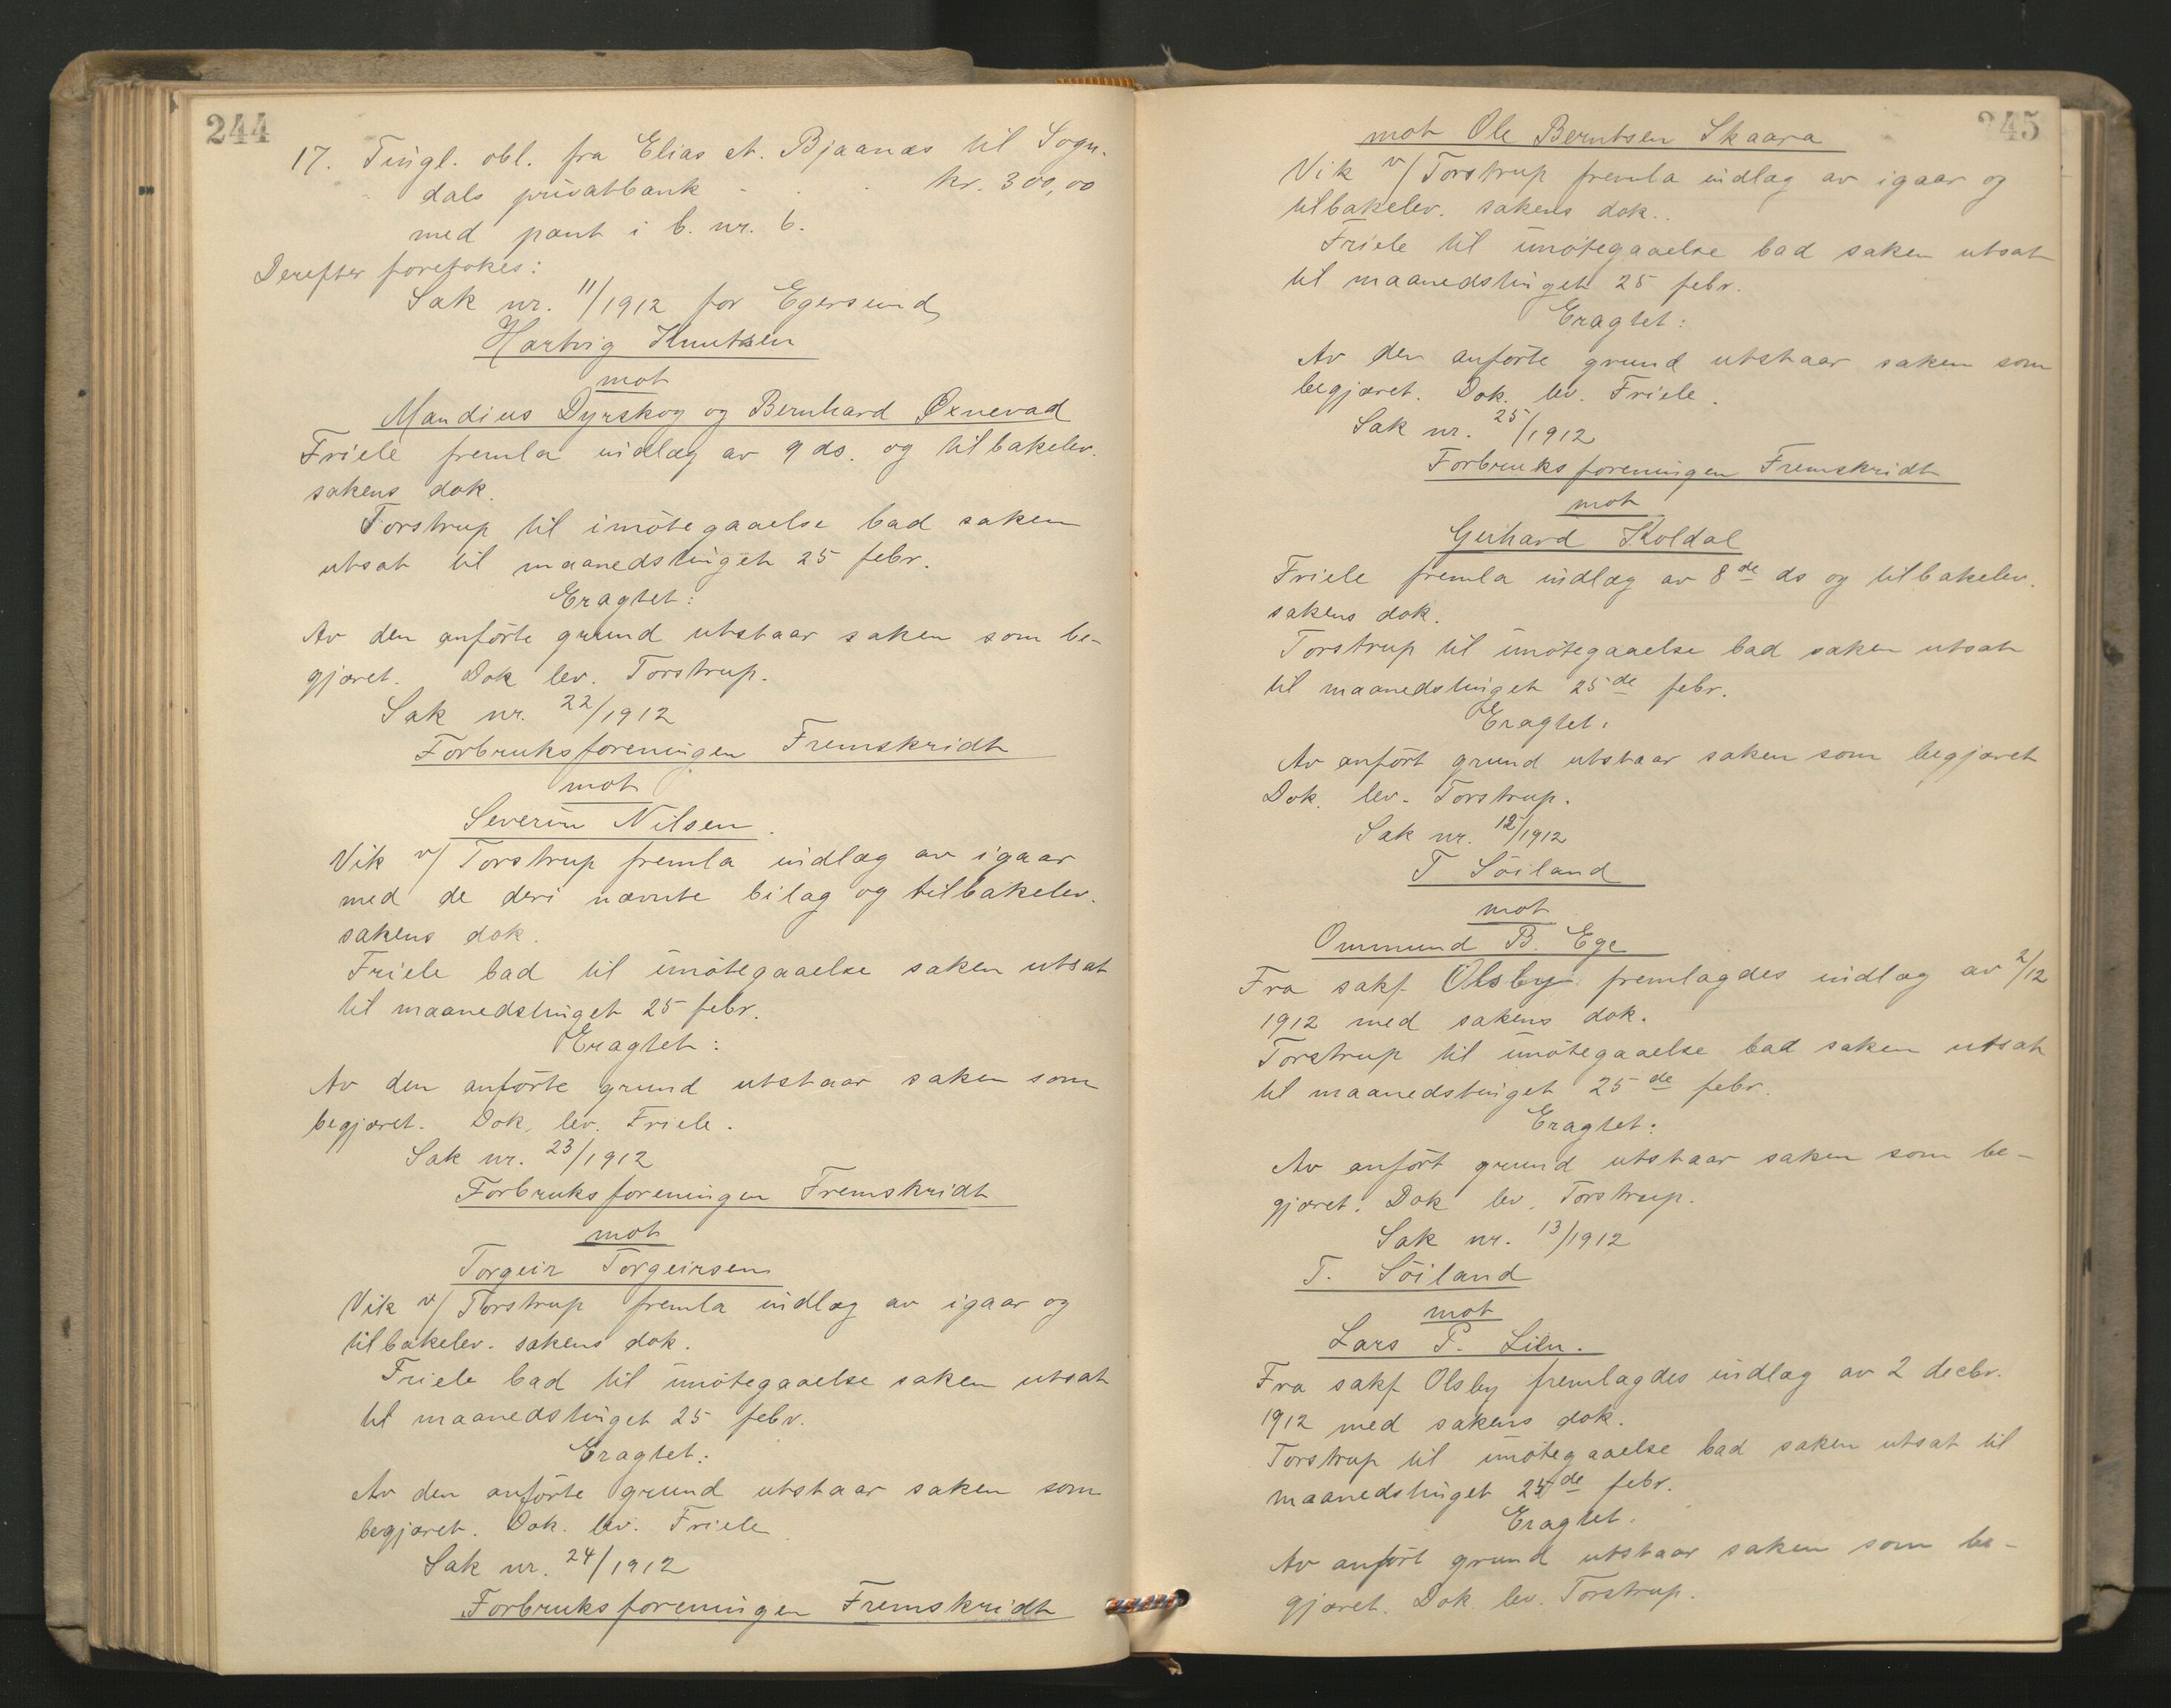 244
17. Tingl. obl. fra Elias A. Bjaanæs til Sogn-
dals privatbank - . . kr. 300,00
med pant i b. nr. 6.
Derefter foretokes:
Sak nr. 11/1912 for Egersund
Hartvig Knutsen
mot
Mandius Dyrskog og Bernhard Øxnevad
Friele fremla indlæg av 9 ds. og tilbakelev.
sakens dok.
Torstrup til imøtegaaelse bad saken
utsat til maanedstinget 25 febr.
Eragtet:
Av den anførte grund utstaar saken som be-
gjæret. Dok lev. Torstrup.
Sak nr. 22/1912
Forbruksforeningen Fremskridt
mot
Severin Nilsen.
Vik v/ Torstrup fremla indlæg av igaar
med de deri nævnte bilag og tilbakelev.
sakens dok.
Friele bad til imøtegaaelse saken utsat
til maanedstinget 25 febr.
Eragtet:
Av den anførte grund utstaar saken som
begjæret. Dok. lev. Friele.
Sak nr. 23/1912
Forbruksforeningen Fremskridt
mot
Torgeir Torgeirsen
Vik v/ Torstrup fremla indlæg av igaar og
tilbakelev. sakens dok.
Friele bad til imøtegaaelse saken utsat
til maanedstinget 25 febr.
Eragtet:
Av den anførte grund utstaar saken som
begjæret. Dok. lev. Friele
Sak nr. 24/1912
Forbruksforeningen Fremskridt
245
mot Ole Berntsen Skaara
Vik v/ Torstrup fremla indlæg av igaar og
tilbakelev. sakens dok..
Friele til imøtegaaelse bad saken utsat
til maanedstinget 25 febr.
Eragtet:
Av den anførte grund utstaar saken som
begjæret. Dok. lev. Friele.
Sak nr. 25/1912
Forbruksforeningen Fremskridt
mot
Gerhard Koldal
Friele fremla indlæg av 8de ds og tilbakelev.
sakens dok.
Torstrup til imøtegaaelse bad saken utsat
til maanedstinget 25de febr.
Eragtet:
Av anført grund utstaar saken som begjæret
Dok. lev. Torstrup.
Sak nr. 12/1912
T Söiland
mot
Ommund B. Ege
Fra sakf. Olsby fremlagdes indlæg av 2/12
1912 med sakens dok.
Torstrup til imøtegaaelse bad saken utsat
til maanedstinget 25de febr.
Eragtet:
Av anført grund utstaar saken som be-
gjæret. Dok lev. Torstrup.
Sak nr. 13/1912
T. Söiland
mot
Lars P. Lien.
Fra sakf. Olsby fremlagdes indlæg av 2 decbr.
1912 med sakens dok.
Torstrup til imøtegaaelse bad saken utsat til
maanedstinget 25de febr.
Eragtet.
Av anført grund utstaar saken som be-
gjæret. Dok. lev. Torstrup.